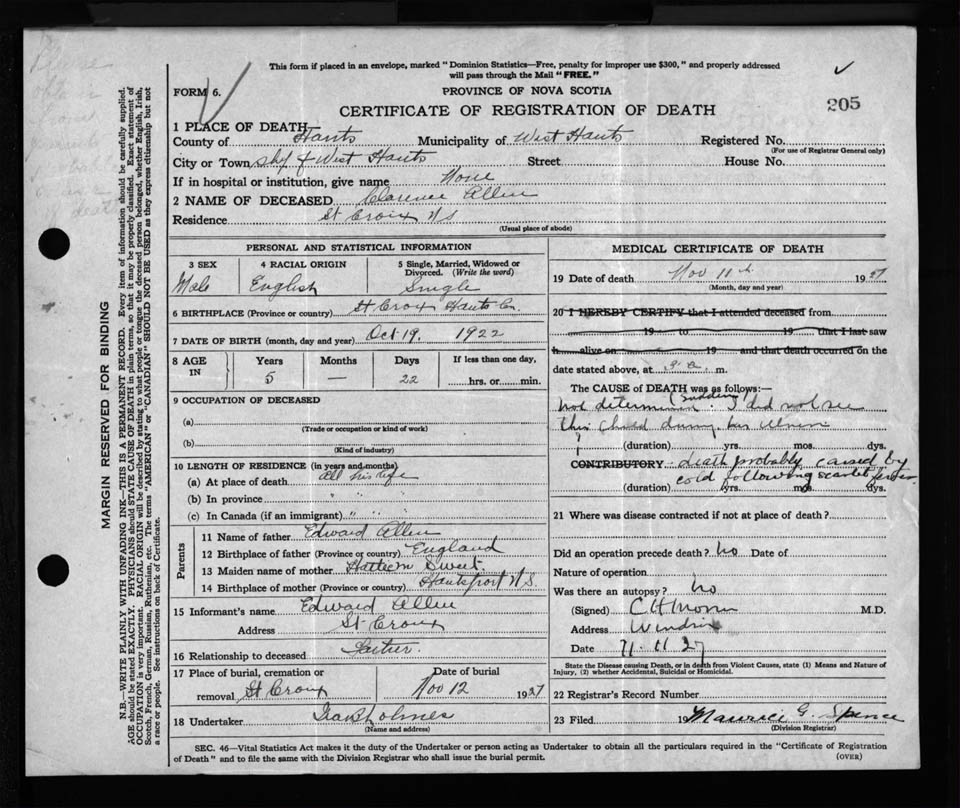 This form if placed in an envelope, marked "Dominion Statistics—Free, penalty for improper use $300," and properly addressed
will pass through the Mail "FREE."
FORM 6.
PROVINCE OF NOVA SCOTIA
CERTIFICATE OF REGISTRATION OF DEATH
205
1 PLACE OF DEATH
County of Hants Municipality of West Hants Registered No.
(For use of Registrar General only)
City or Town West Hants Street House No.
If in hospital or institution, give name None
2 NAME OF DECEASED Clarence Allen
Residence St Croix N S
(Usual place of abode)
PERSONAL AND STATISTICAL INFORMATION
3 SEX 4 RACIAL ORIGIN 5 Single, Married, Widowed or Divorced. (Write the word)
Male English Single
6 BIRTHPLACE (Province or country) St Croix Hants Co.
7 DATE OF BIRTH (month, day and year) Oct 19. 1922
8 AGE IN Years Months Days If less than one day,
5 — 22 hrs. or min.
9 OCCUPATION OF DECEASED
(a)
(Trade or occupation or kind of work)
(b)
(Kind of industry)
10 LENGTH OF RESIDENCE (in years and months)
(a) At place of death All his life
(b) In province " "
(c) In Canada (if an immigrant) " " "
Parents
11 Name of father Edward Allen
12 Birthplace of father (Province or country) England
13 Maiden name of mother Sweet
14 Birthplace of mother (Province or country) Hantsport N.S.
15 Informant's name Edward Allen
Address St Croix
16 Relationship to deceased Father
17 Place of burial, cremation or removal St Croix Date of burial Nov 12 1927
18 Undertaker Holmes
(Name and address)
MEDICAL CERTIFICATE OF DEATH
19 Date of death Nov 11th 1927
(Month, day and year)
20 I HEREBY CERTIFY that I attended deceased from
19 to 19 that I last saw
h alive on 19 and that death occurred on the
date stated above, at 3 a. m.
The CAUSE of DEATH was as follows:—
(sudden)
Not determined. I did not see
this child during his illness
(duration) yrs. mos. dys.
CONTRIBUTORY death probably caused by
cold following scarlet fever.
(duration) yrs. mos. dys.
21 Where was disease contracted if not at place of death?
Did an operation precede death? No Date of
Nature of operation
Was there an autopsy? No
(Signed) C H Morris M.D.
Address Windsor
Date 11.11.27
State the Disease causing Death, or in death from Violent Causes, state (1) Means and Nature of
Injury, (2) whether Accidental, Suicidal or Homicidal.
22 Registrar's Record Number
23 Filed 19 Maurice G. Spence
(Division Registrar)
SEC. 46—Vital Statistics Act makes it the duty of the Undertaker or person acting as Undertaker to obtain all the particulars required in the "Certificate of Registration
of Death" and to file the same with the Division Registrar who shall issue the burial permit.
(OVER)
MARGIN RESERVED FOR BINDING
N.B.—WRITE PLAINLY WITH UNFADING INK—THIS IS A PERMANENT RECORD. Every item of information should be carefully supplied.
AGE should be stated EXACTLY. PHYSICIANS should STATE CAUSE OF DEATH in plain terms, so that it may be properly classified. Exact statement of
OCCUPATION is very important. RACIAL ORIGIN will be described by stating to what people or tongue the deceased person belonged, whether English, Irish,
Scotch, French, German, Russian, Ruthenian, etc. The terms "AMERICAN" or "CANADIAN" SHOULD NOT BE USED as they express citizenship but not
a race or people. See instructions on back of Certificate.